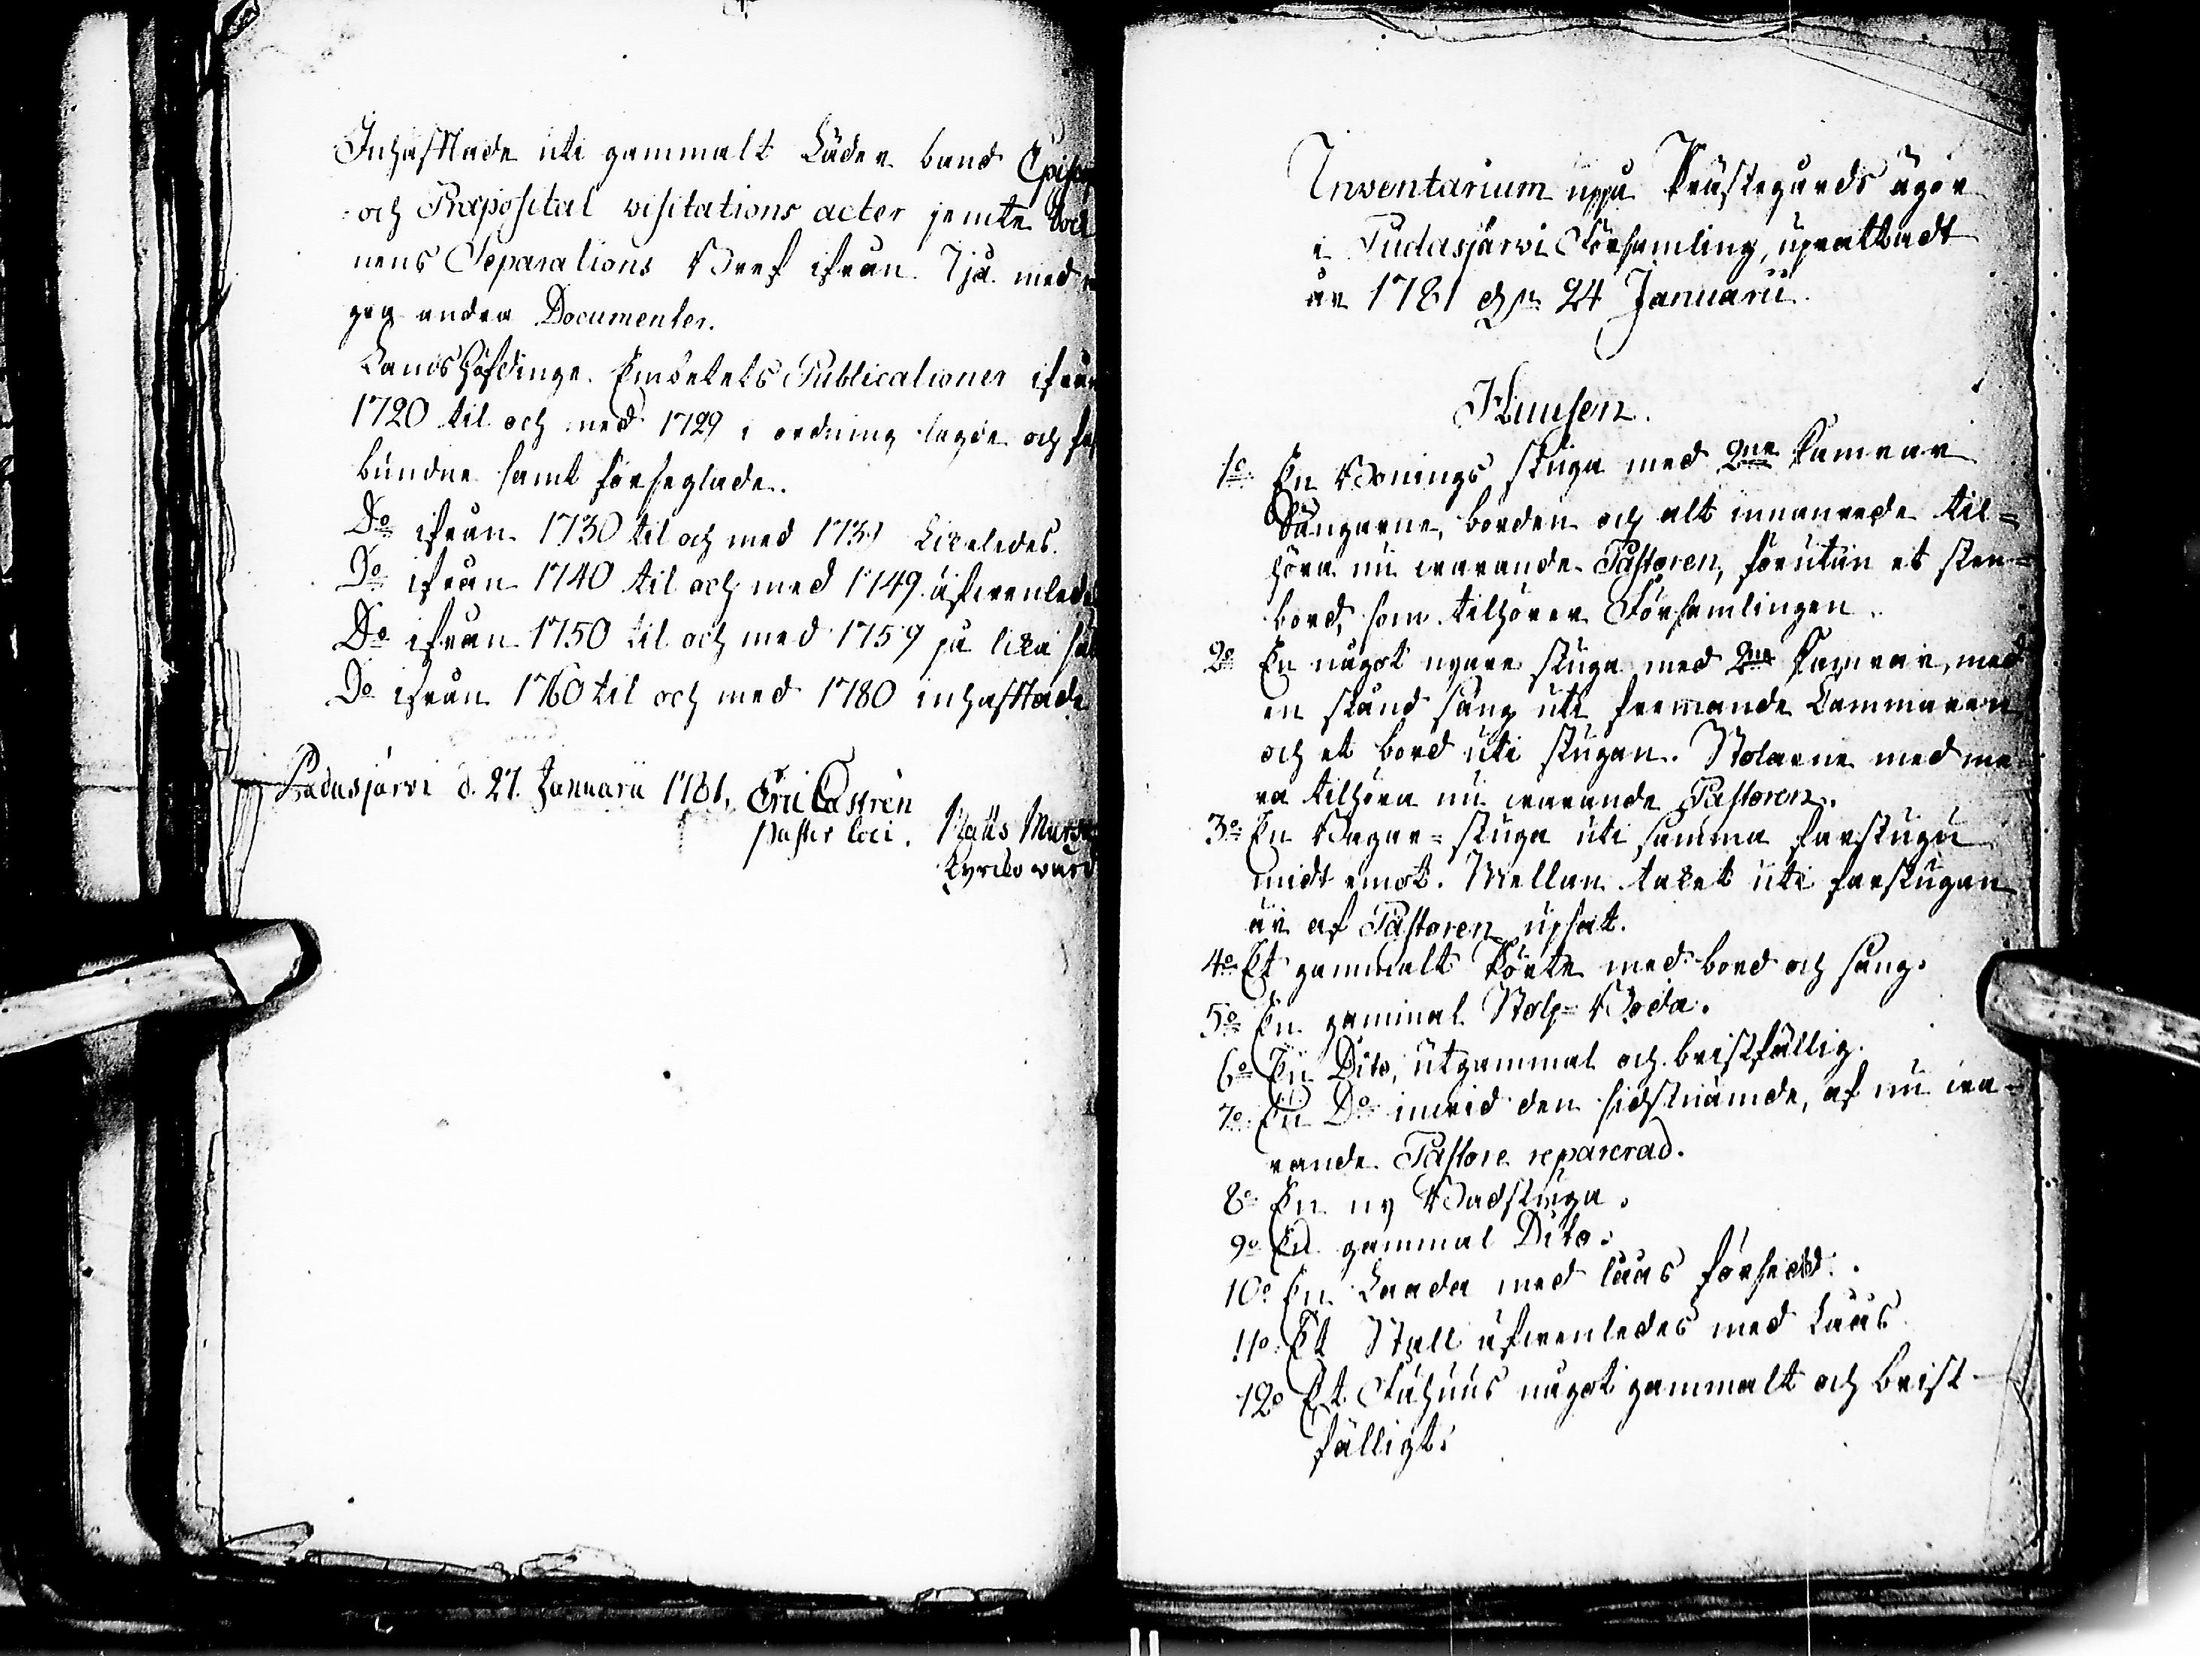 Inhäfftade uti gammalt Läder band Episco
och Præposital visitations acter jemte Soc
nens Separations Bref ifrån Ijå med
andra Documenter.
Landshöfdinge Embetets Publicationer ifrån
1720 til och med 1729 i ordning lagde och
bundne samt förseglade.
Do ifrån 1730 til och med 1739 Likeledes.
Do ifrån 1740 til och med 1749 äfwenledes
Do ifrån 1750 til och med 1759 på lika sä
Do ifrån 1760 til och med 1780 inhäfftade
Pudasjärvi d. 27. Januarii 1781. Eric Castrén
Pastor loci. Matts
Kyrcko wärd
Inventarium uppå Prästegårds ägor
i Pudasjärvi Församling, uprättadt
år 1781 den 24 Januarii.
Huusen.
1o En Bonings stuga med 2ne Kamrar
Sängarne, borden och alt innanrede til=
höra nu warande Pastoren, förutan et sten=
bord, som tilhörer Församlingen.
2o En något nyare stuga med 2ne Kamrar, med
en stånd säng uti fremande Cammaren
och et bord uti stugan. Stolarne med me
ra tilhöra nu warande Pastoren.
3o En Bagar=stuga uti samma farstugu
midt emot. Mellan taket uti farstugan
är af Pastoren upsat.
4o Et gammalt Pörte med bord och säng.
5o En gammal Stolp=Boda.
6o En Dito, utgammal och bristfällig.
7o En Do inwid den sidstnämde, af nu wa=
rande Pastore reparerad.
8o En ny Badstuga.
9o En gammal Dito.
10o En Laada med låås försedd.
11o Et Stall äfwenledes med Låås
12o Et Fähuus något gammalt och brist
fälligt.